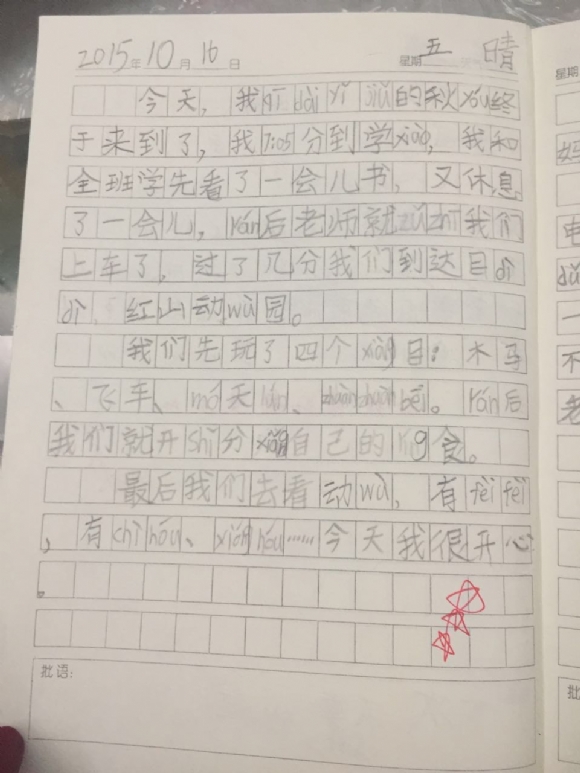 2015年10月16日 星期五 晴
今天，我qī dài yǐ jiǔ的秋yóu终
于来到了，我7:05分到学xiào，我和
全班学先看了一会儿书，又休息
了一会儿，rán后老师就zǔ zhī我们
上车了，过了几分我们到达目dì
dì，红山动wù园。
我们先玩了四个xiàng目：木马
、飞车、mó天lún、zhuàn zhuàn bēi。rán后
我们就开shǐ分xiǎng自己的食。
最后我们去看动wù，有fèi fèi
，有chì hóu、xióng hóu……今天我很开心
。
批语：
星期
妈
电
一
不
老
批